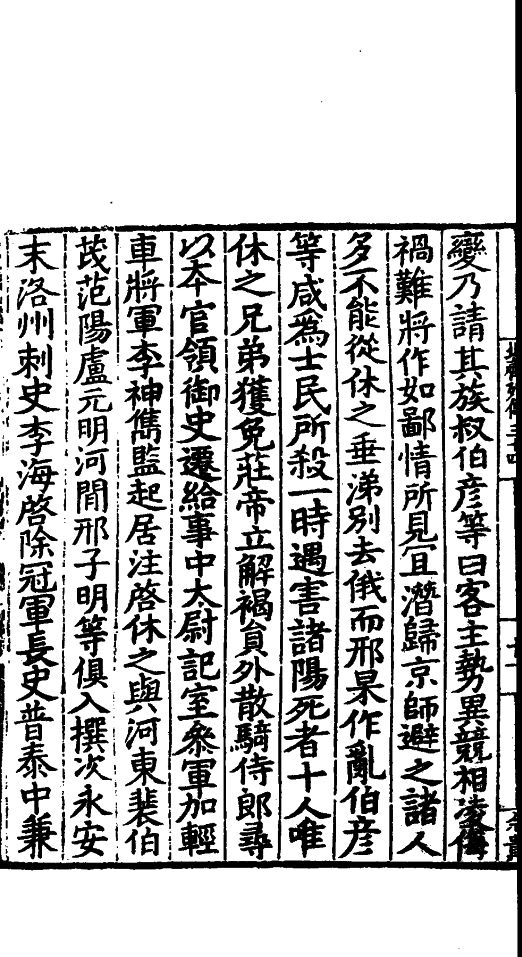 變乃請其族叔伯彦等曰客主勢異競相凌侮
禍難將作如鄙情所見冝潛歸京師避之諸人
多不能從休之垂涕别去俄而邢杲作亂伯彦
等咸為士民所殺一時遇害諸陽死者十人唯
休之兄弟獲免莊帝立解褐貟外散騎侍郎尋
以本官領御史遷給事中太尉記室叅軍加輕
車將軍李神雋監起居注啓休之與河東裴伯
茂范陽盧元明河間邢子明等俱入撰次永安
末洛州刺史李海啓除冠軍長史普泰中兼